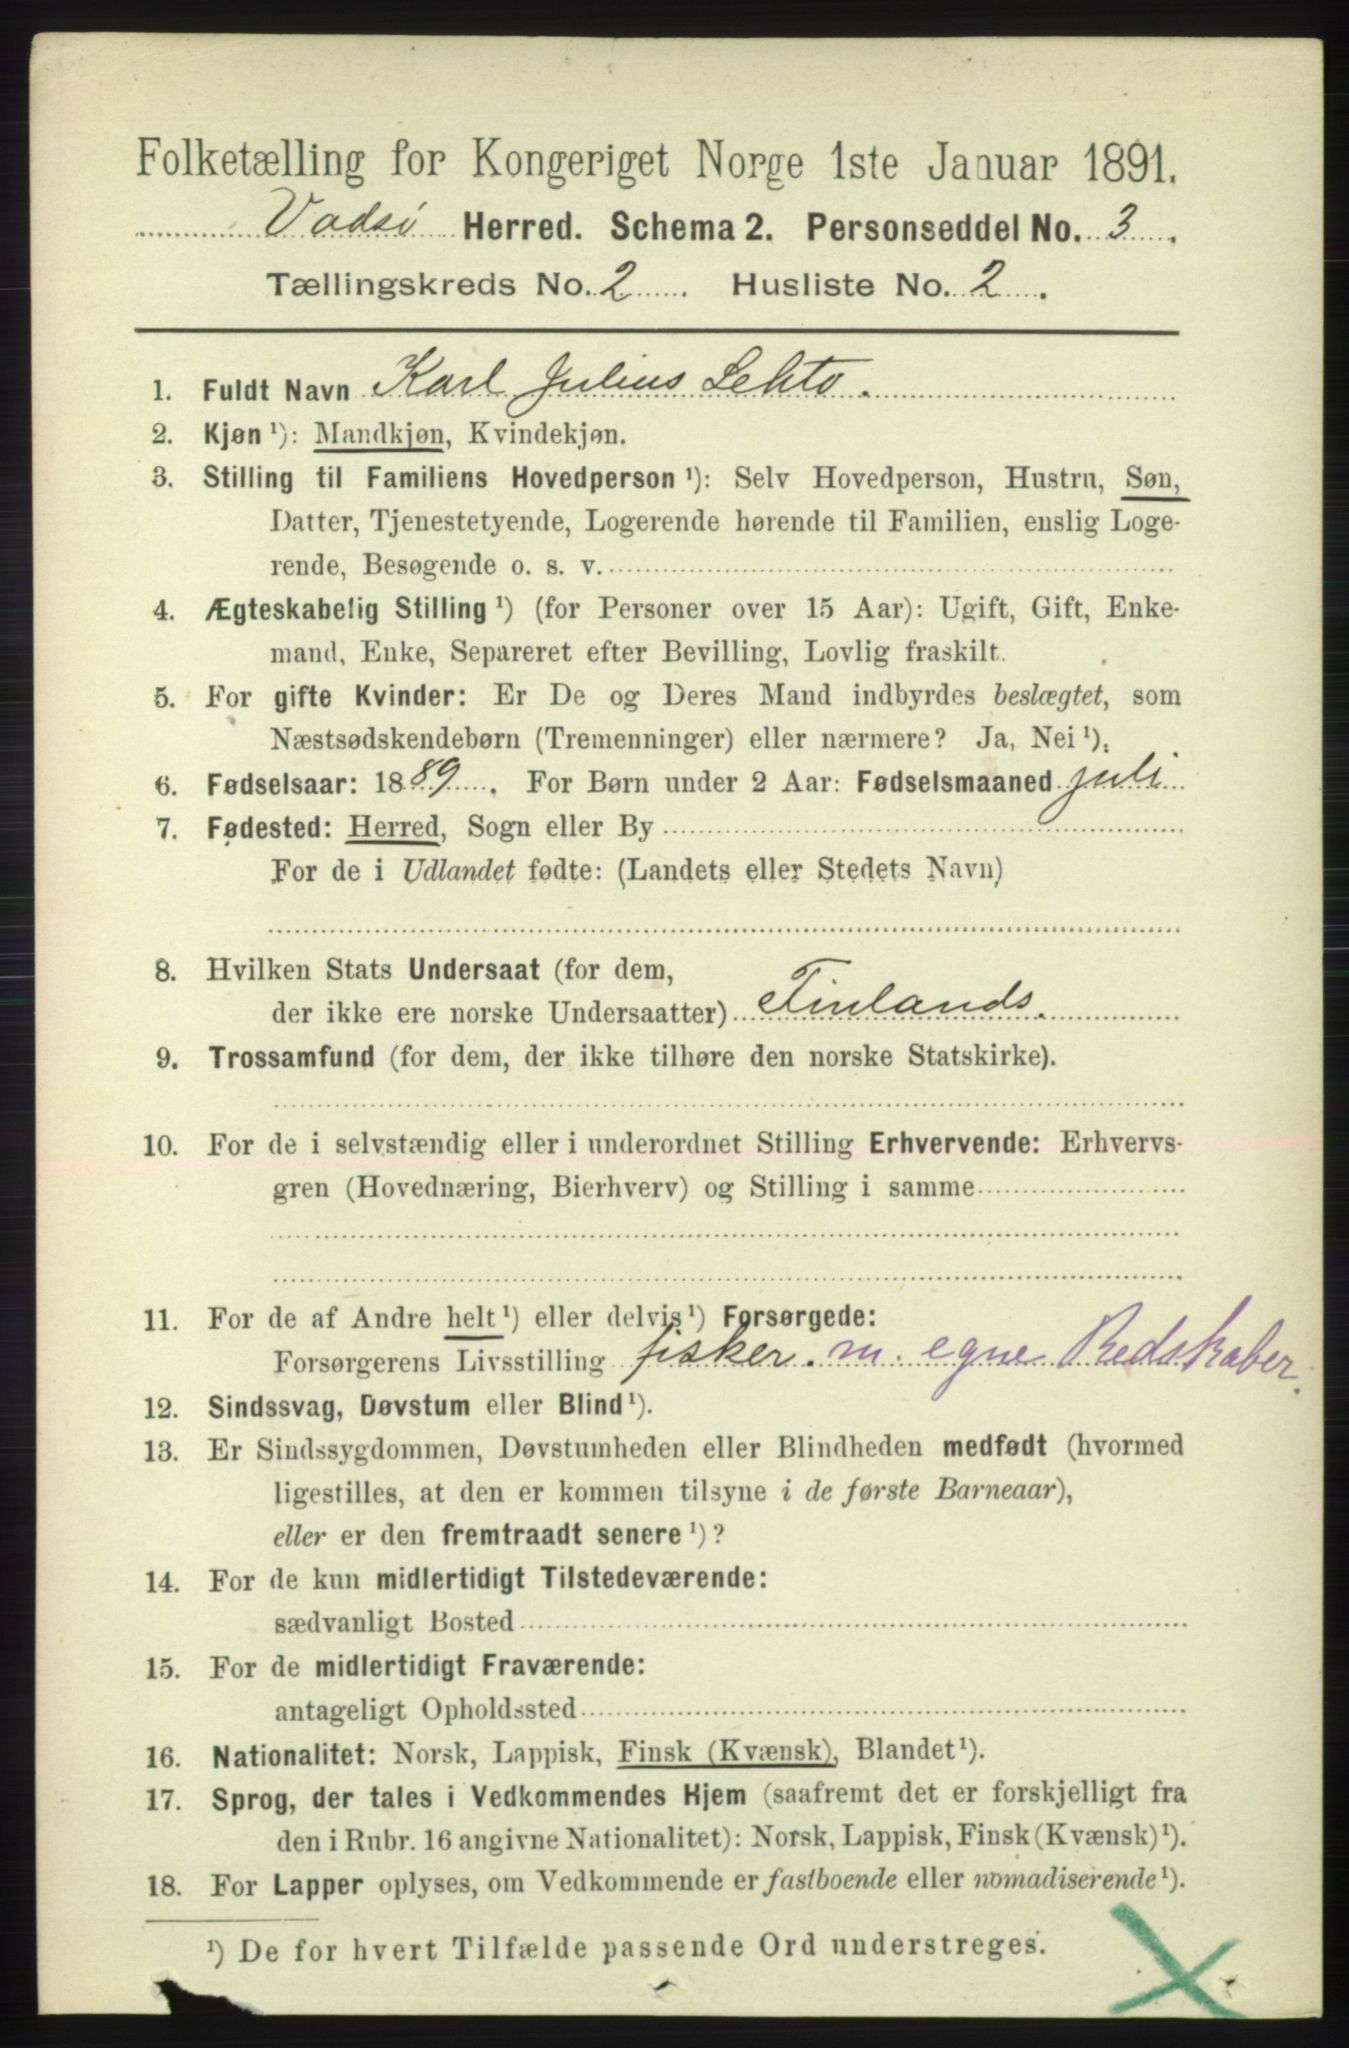 Folketælling for Kongeriget Norge 1ste Januar 1891.
Vadsö Herred. Schema 2. Personseddel No. 3.
Tællingskreds No. 2. Husliste No. 2.
1. Fuldt Navn Karl Julius Lehto.
2. Kjøn ¹): Mandkjøn, Kvindekjøn.
3. Stilling til Familiens Hovedperson ¹): Selv Hovedperson, Hustru, Søn,
Datter, Tjenestetyende, Logerende hørende til Familien, enslig Loge-
rende, Besøgende o. s. v.
4. Ægteskabelig Stilling ¹) (for Personer over 15 Aar): Ugift, Gift, Enke-
mand, Enke, Separeret efter Bevilling, Lovlig fraskilt.
5. For gifte Kvinder: Er De og Deres Mand indbyrdes beslægtet, som
Næstsødskendebørn (Tremenninger) eller nærmere? Ja, Nei ¹).
6. Fødselsaar: 1889. For Børn under 2 Aar: Fødselsmaaned juli
7. Fødested: Herred, Sogn eller By
For de i Udlandet fødte: (Landets eller Stedets Navn)
8. Hvilken Stats Undersaat (for dem,
der ikke ere norske Undersaatter) Finlands.
9. Trossamfund (for dem, der ikke tilhøre den norske Statskirke).
10. For de i selvstændig eller i underordnet Stilling Erhvervende: Erhvervs-
gren (Hovednæring, Bierhverv) og Stilling i samme
11. For de af Andre helt ¹) eller delvis ¹) Forsørgede:
Forsørgerens Livsstilling fisker. m. egne Redskaber.
12. Sindssvag, Døvstum eller Blind ¹).
13. Er Sindssygdommen, Døvstumheden eller Blindheden medfødt (hvormed
ligestilles, at den er kommen tilsyne i de første Barneaar),
eller er den fremtraadt senere ¹)?
14. For de kun midlertidigt Tilstedeværende:
sædvanligt Bosted
15. For de midlertidigt Fraværende:
antageligt Opholdssted
16. Nationalitet: Norsk, Lappisk, Finsk (Kvænsk), Blandet ¹).
17. Sprog, der tales i Vedkommendes Hjem (saafremt det er forskjelligt fra
den i Rubr. 16 angivne Nationalitet): Norsk, Lappisk, Finsk (Kvænsk) ¹).
18. For Lapper oplyses, om Vedkommende er fastboende eller nomadiserende ¹).
¹) De for hvert Tilfælde passende Ord understreges.